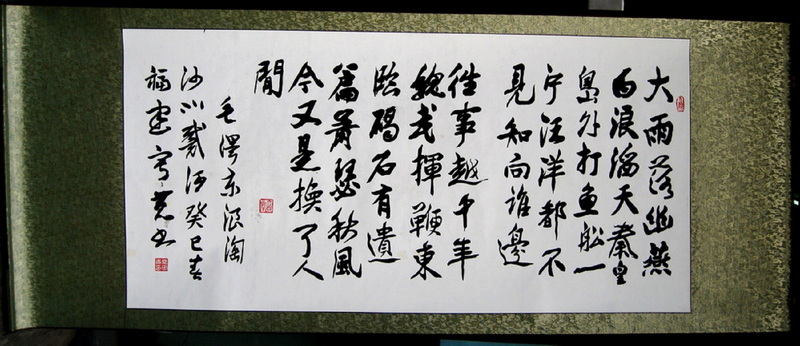 大雨落幽燕
白浪滔天秦皇
島外打魚船一
片汪洋都不
見知向誰邊
往事越千年
魏武揮鞭東
臨碣石有遺
篇蕭瑟秋風
今又是換了人
間
毛澤东浪淘
沙北戴河癸巳春
福建
书